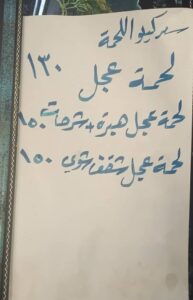 سعر كيلو اللحمة
لحمة عجل ١٣٠
لحمة عجل هبرة + شرحات ١٥٠
لحمة عجل شقف شوي ١٥٠